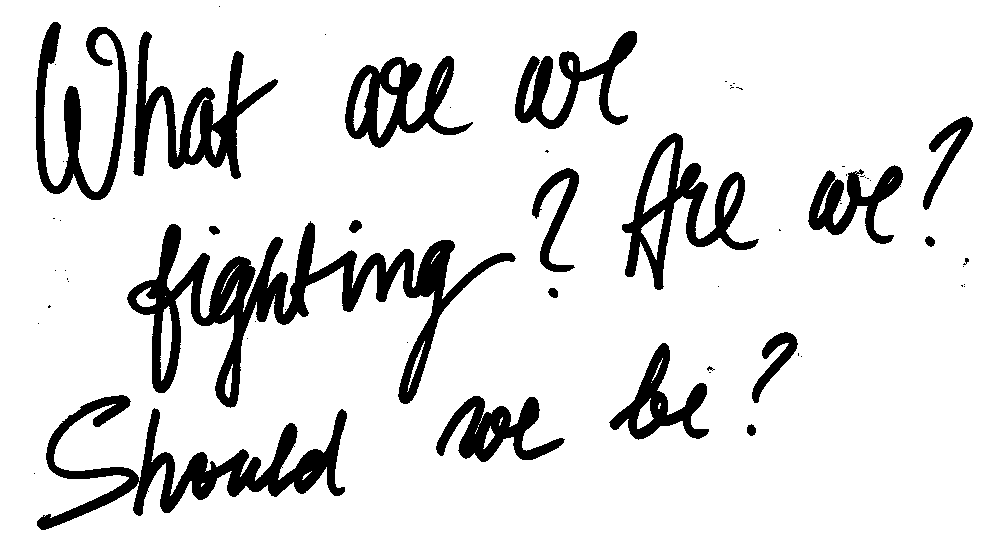 What are we
fighting? Are we?
Should we be?